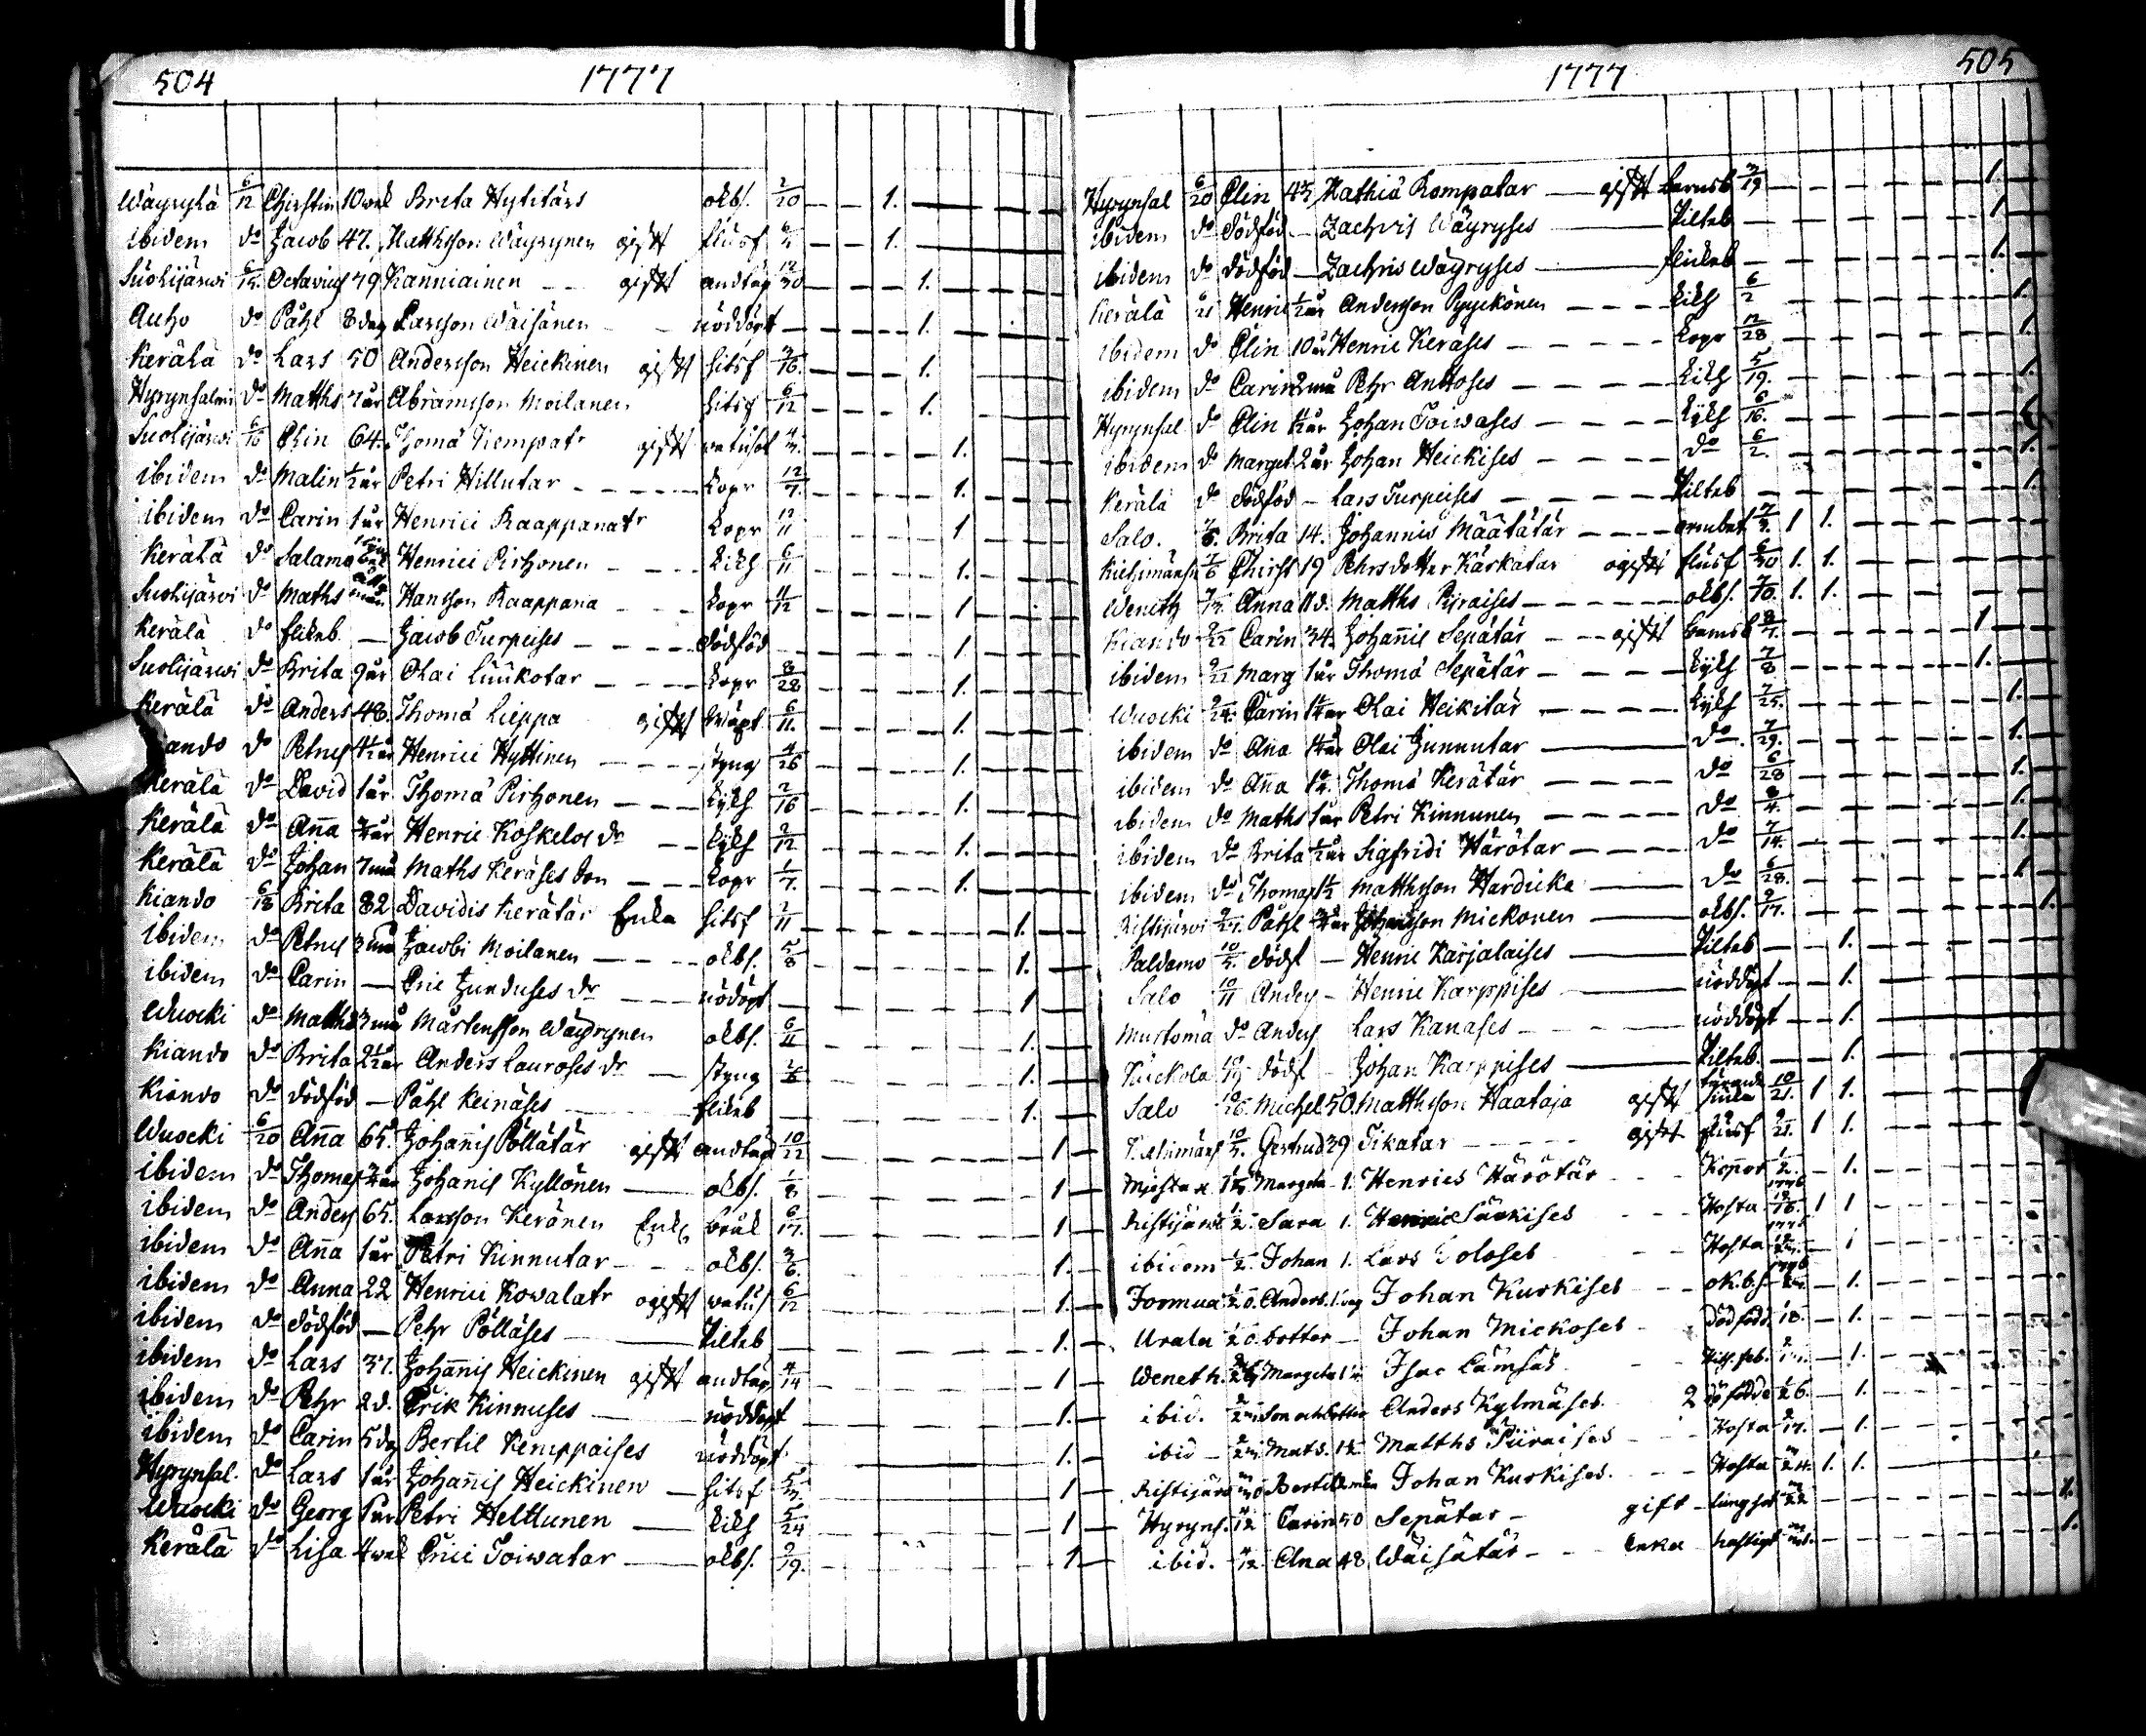 504 1777
Wäyrylä 6/12 Chirstin 10 wek Brita Hytitärs okbs. 2/20 1.
ibidem do Jacob 47. Matthsson Wäyrynen gift flusf 1.
Suolijärwi 6/15. Octavius 79 Kanniainen gift andtäp 12/30 1.
Autio do Påhl 8 dag Larsson Wäisänen nöddöpt 1.
Kerälä do Lars 50 Andersson Heickinen gift hitsf 3/16. 1.
Hyrynsalmi do Matths 7 år Abramsson Moilanen hitsf 6/12 1.
Suolijärwi 6/16 Elin 64. Thomä Kempatr gift watusot 4/3. 1.
ibidem do Malin 1/2 år Petri Hillutar Kopr 12/7. 1.
ibidem do Carin 1 år Henrici Raappanatr Kopr 12/11 1
Kerälä do Salamo Henrici Pirhonen Kikh 6/11 1.
Suolijärwi do Maths Hansson Raappana Kopr 11/12 1
Kerälä do flickb. — Jacob Turpeises dödföd 1.
Suolijärwi do Brita 9 år Olai Luukotar Kopr 8/28 1.
Kerälä do Anders 48. Thomä Lieppa gift 6/11. 1.
Kiando do Petrus Henrici Hyttinen styng 4/26 1.
Kerälä do David 1 år Thomä Pirhonen Kykh 2/16 1.
Kerälä do Ana 3/4 år Henric Koskelos dr Kykh 2/12 1.
Kerälä do Johan 7 må Maths Keräses son Kopr 1/7. 1.
Kiando 6/18 Brita 82 Davidis Kerätär Enka hitsf 2/11 1.
ibidem do Petrus 3 må Jacobi Moilanen okbs. 5/8 1.
ibidem do Carin — Eric Junduses dr nöddöpt 1
Wuocki do Matths 3 må Mårtensson Wäyrynen okbs. 6/11 1.
Kiando do Brita Anders Lauroses dr styng 1.
Kiando do dödföd — Påhl Keinäses flickb 1.
Wuocki 6/20 Ana 65. Johanis Pöllätär gift andtäp 10/22 1
ibidem do Thomas Johanis Kyllönen okbs. 1/8 1
ibidem do Anders 65. Larsson Keränen Enkl bråk 6/17. 1
ibidem do Ana 1 år Petri Kinnutar okbs. 3/6. 1.
ibidem do Anna 22 Henrici Kowalatr ogift watus 6/12 1.
ibidem do dödföd — Pehr Pölläses Pilteb 1.
ibidem do Lars 37. Johanis Heickinen gift andtäp 4/14 1
ibidem do Pehr 2 d. Erik Kinnuses nöddöpt 1.
ibidem do Carin 5 dag Bertil Kemppaises nöddöpt. 1.
Hyrynsal. do Lars 1 år Johanis Heickinen hitsf 5/3. 1
Wuocki do Georg 5 år Petri Helttunen Kikh 5/24 1
Kerälä do Lisa 4 wek Erici Toiwatar okbs. 9/19. 1
1777 505
Hyrynsal 6/20 Elin 43 Mathiä Kompatar gift barnsb 3/19 1.
ibidem do dödföd — Zachris Wäyryses Pilteb 1.
ibidem do dödföd — Zachris Wäyryses flickb 1.
Kerälä 6/21 Henric 1/2 år Andersson Pyyckönen Kikh 6/2 1.
ibidem do Elin 10 år Henric Keräses Kopr 12/28 1.
ibidem do Carin 2 må Pehr Anttoses Kikh 5/19. 1.
Hyrynsal do Elin Johan Toiwases Kykh 6/16.
ibidem do Marget 2 år Johan Heickises do 6/2. 1.
Kerälä do dödföd — Lars Turpeises Pilteb 1.
Salo. 7/6. Brita 14. Johannis Määtätär 7/3. 1 1.
Kiehimänsu 7/6 Chirst 19 Pehrsdotter Karkatar ogift flusf 6/30 1. 1.
Weneth 7/13. Anna 11 d. Matths Pijraises okbs. 7/10. 1. 1.
Kiando 9/22 Carin 34. Johanis Sepätär gift barnsb 8/7. 1
ibidem 9/22 Marg 1 år Thomä Sepätär Kykh 7/8 1.
Wuocki 9/24. Carin Olai Heikitär Kykh 7/25. 1.
ibidem do Ana Olai Junnutar do. 7/29. 1.
ibidem do Ana Thomä Kerätär do 6/28 1.
ibidem do Maths 1 år Petri Kinnunen do 8/4. 1.
ibidem do Brita 1/2 år Sigfridi Härötar do 7/14. 1.
ibidem do Thomas 1 1/2 Matthsson Hardicke do 6/28. 1
Ristijärwi 9/27. Påhl Johansson Mickonen okbs. 9/17. 1.
Paldamo 10/5. dödf — Henric Karjalaises Pilteb 1.
Salo 10/11 Anders — Henric Karppises nöddöpt 1.
Mustomä do Anders Lars Kanases nöddöpt 1.
dödf — Johan Karppises Pilteb 1.
Salo 10/26. Michel 50. Matthsson Haataja gift 10/21. 1 1.
10/5. Gertrud 39 Tikatar gift flusf 9/21. 1 1.
Margeta 1. Henrics Härötär Koppor 1.
Ristijärwi Sara 1. Henric Särkises Hosta 1776 1 1
ibidem Johan 1. Lars Holoses Hosta 1776 1
Jormua Anders. Johan Kurkises ok.b.s. 1776 1.
Urala dotter — Johan Mickoses dödfödd 18. 1.
Weneth. Margeta Isac Lämsäs 1.
ibid. son och dotter Anders Kylmäses. 2 döfödde 1.
ibid — Mats. Matths Piiraises Hosta 17. 1.
Ristijärw Bertil Johan Kurkises. Hosta 24. 1. 1.
Hyryns. 12 Carin 50 Sepätar — gift — lungsot 22 1.
ibid. 12 Ana 48 Wäisätär — Enka hastigt 1.